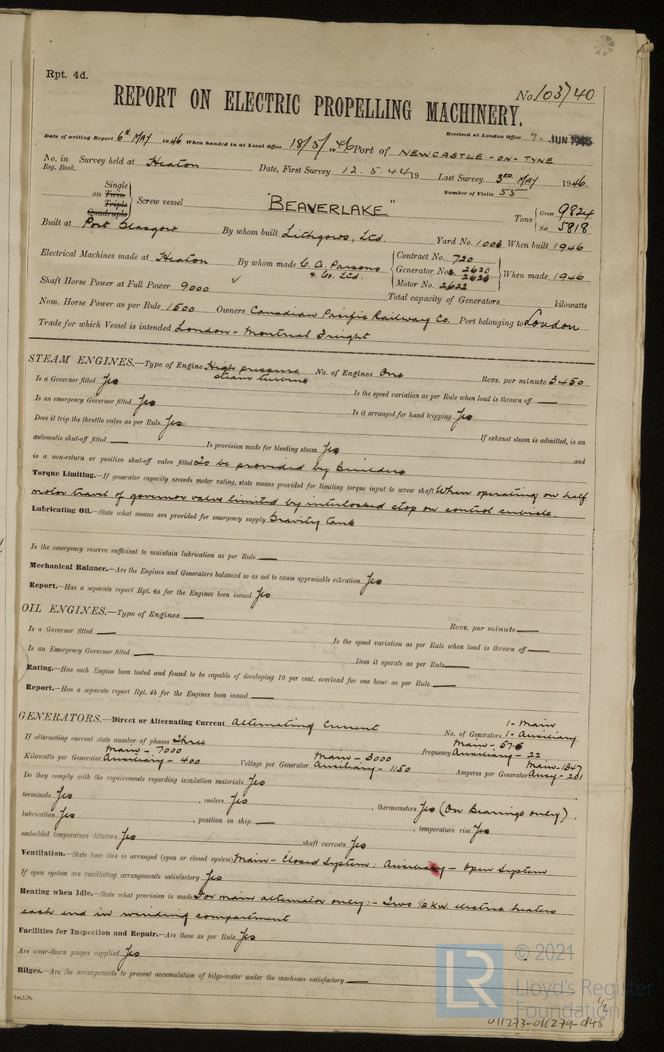 Rpt. 4d.
No. 103740
REPORT ON ELECTRIC PROPELLING MACHINERY.
Received at London Office 7 - JUN 1946
Date of writing Report 6th MAY 1946 When handed in at Local Office 18/5/1946 Port of NEWCASTLE-ON-TYNE
No. in Reg. Book. Survey held at Heaton Date, First Survey 12.5.44 19 Last Survey 3RD MAY 1946.
Number of Visits 55
on Single Twin Triple Quadruple Screw vessel "BEAVERLAKE" Tons Gross 9824 Net 5818
Built at Port Glasgow By whom built Lithgows, Ltd. Yard No. 1003 When built 1946
Electrical Machines made at Heaton By whom made C. A. Parsons & Co. Ltd. Contract No. 720 Generator Nos. 2620 Motor No. 2622 When made 1946
Shaft Horse Power at Full Power 9000 Total capacity of Generators kilowatts
Nom. Horse Power as per Rule 1500 Owners Canadian Pacific Railway Co. Port belonging to London
Trade for which Vessel is intended London - Montreal Freight
STEAM ENGINES.—Type of Engine High pressure steam turbine No. of Engines One Revs. per minute 3450
Is a Governor fitted Yes Is the speed variation as per Rule when load is thrown off —
Is an emergency Governor fitted Yes Is it arranged for hand tripping Yes
Does it trip the throttle valve as per Rule Yes If exhaust steam is admitted, is an
automatic shut-off fitted — Is provision made for bleeding steam Yes and
is a non-return or positive shut-off valve fitted To be provided by Builders
Torque Limiting.—If generator capacity exceeds motor rating, state means provided for limiting torque input to screw shaft When operating on half
motor travel of governor valve limited by interlocked stop on control cubicle.
Lubricating Oil.—State what means are provided for emergency supply Gravity tank
Is the emergency reserve sufficient to maintain lubrication as per Rule —
Mechanical Balance.—Are the Engines and Generators balanced so as not to cause appreciable vibration Yes
Report.—Has a separate report Rpt. 4a for the Engines been issued Yes
OIL ENGINES.—Type of Engines — Revs. per minute —
Is a Governor fitted — Is the speed variation as per Rule when load is thrown off —
Is an Emergency Governor fitted — Does it operate as per Rule —
Rating.—Has each Engine been tested and found to be capable of developing 10 per cent. overload for one hour as per Rule —
Report.—Has a separate report Rpt. 4b for the Engines been issued —
GENERATORS.—Direct or Alternating Current Alternating Current No. of Generators 1 - Main 1 - Auxiliary
If alternating current state number of phases Three frequency Main - 57.5 Auxiliary - 22
Kilowatts per Generator Main - 7000 Auxiliary - 400 Voltage per Generator Main - 3000 Auxiliary - 1150 Amperes per Generator Main - 1347 Auxy - 201
Do they comply with the requirements regarding insulation materials Yes
terminals Yes , coolers Yes , thermometers Yes (On Bearings only).
lubrication Yes , position in ship — , temperature rise Yes
embedded temperature detectors Yes shaft currents Yes
Ventilation.—State how this is arranged (open or closed system) Main - Closed System: Auxiliary - Open System
If open system are ventilating arrangements satisfactory Yes
Heating when Idle.—State what provision is made For main alternator only:- Two ½ kw electric heaters
each end in winding compartment
Facilities for Inspection and Repair.—Are these as per Rule Yes
Are wear-down gauges supplied Yes
Bilges.—Are the arrangements to prevent accumulation of bilge-water under the machines satisfactory —
LR
© 2021
Lloyd's Register
Foundation
1/3
011273-011279-0145